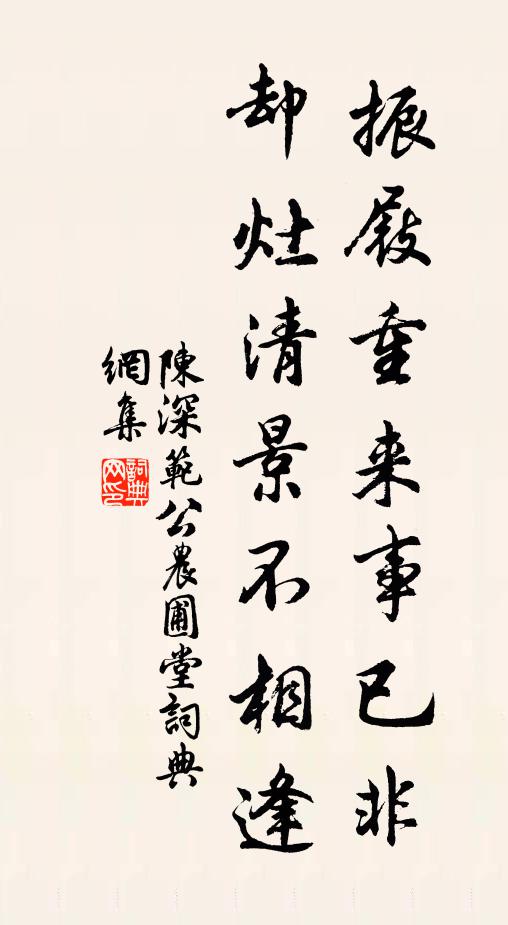 振屐重来事已非
却灶清景不相逢
陳深範公農圃堂詞典
網集
詞典
网印